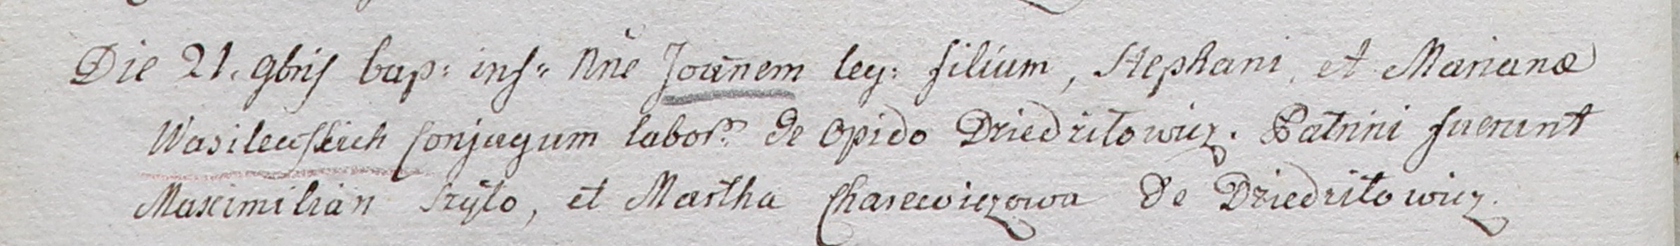 Die 21. 9bris bap: inf: Nne Joañem leg: filium, Stephani, et Marianæ
Wasilewskich conjugum labor: de opido Dziedziłowicz. Patrini fuerunt
Maximilian Szyło, et Martha Charewiczowa de Dziedziłowicz.